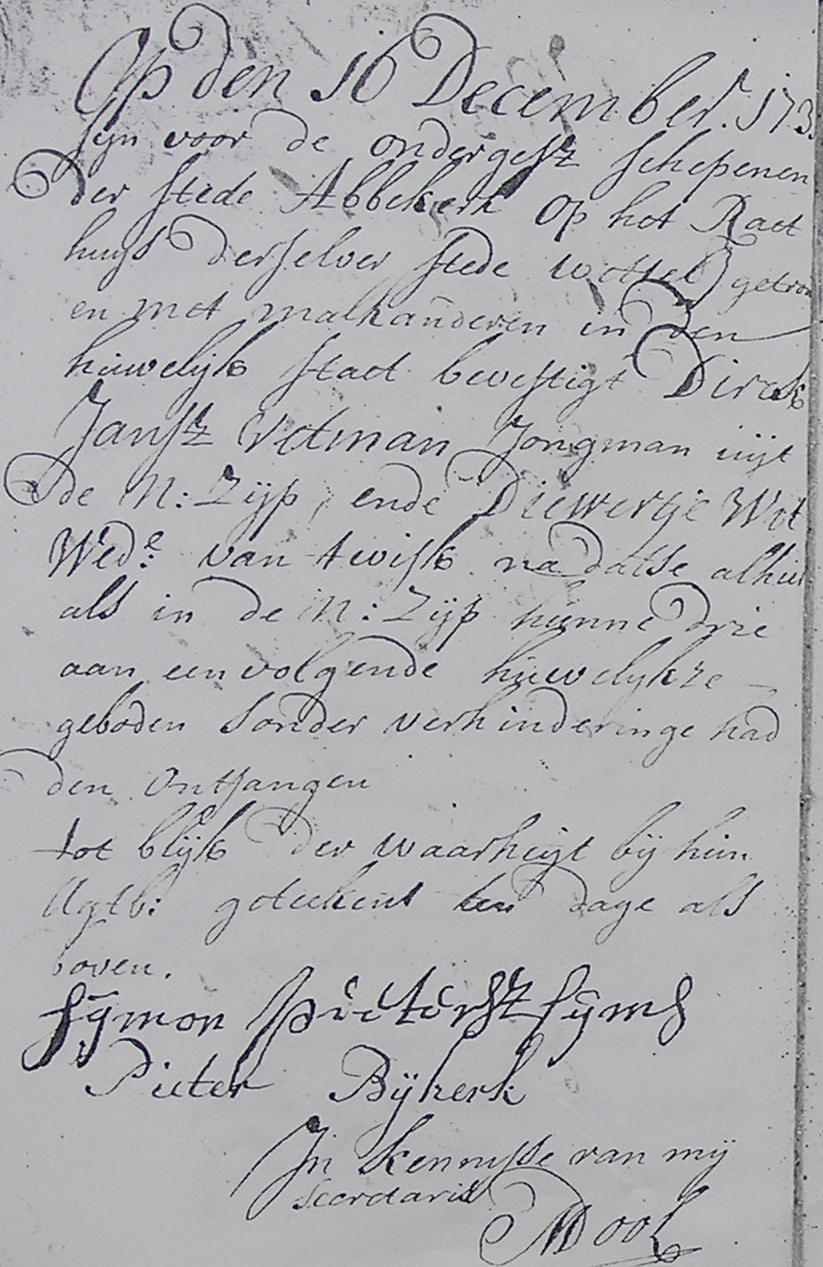 Op den 16 December. 173
sijn voor de ondergesz schepenen
der stede Abbekerk op het Raet
huijs derselver stede wettel getro
en met malkanderen in den
huwelijk staet bevestigt Dirck
Jansz Volman Jongman uijt
de N: Zijp, ende Diewertje Wit
Wed:e van twisk na datse alhier
als in de N: Zijp hunne drie
aan een volgende huwelijkze
geboden sonder verhinderinge had
den Ontfangen
tot blijk der waarheijt bij hun
Agtb: geteekent ten dage als
boven.
Sijmon Pietersz Sijms
Pieter Bijkerk
In kennisse van mij
Secretaris
MDool